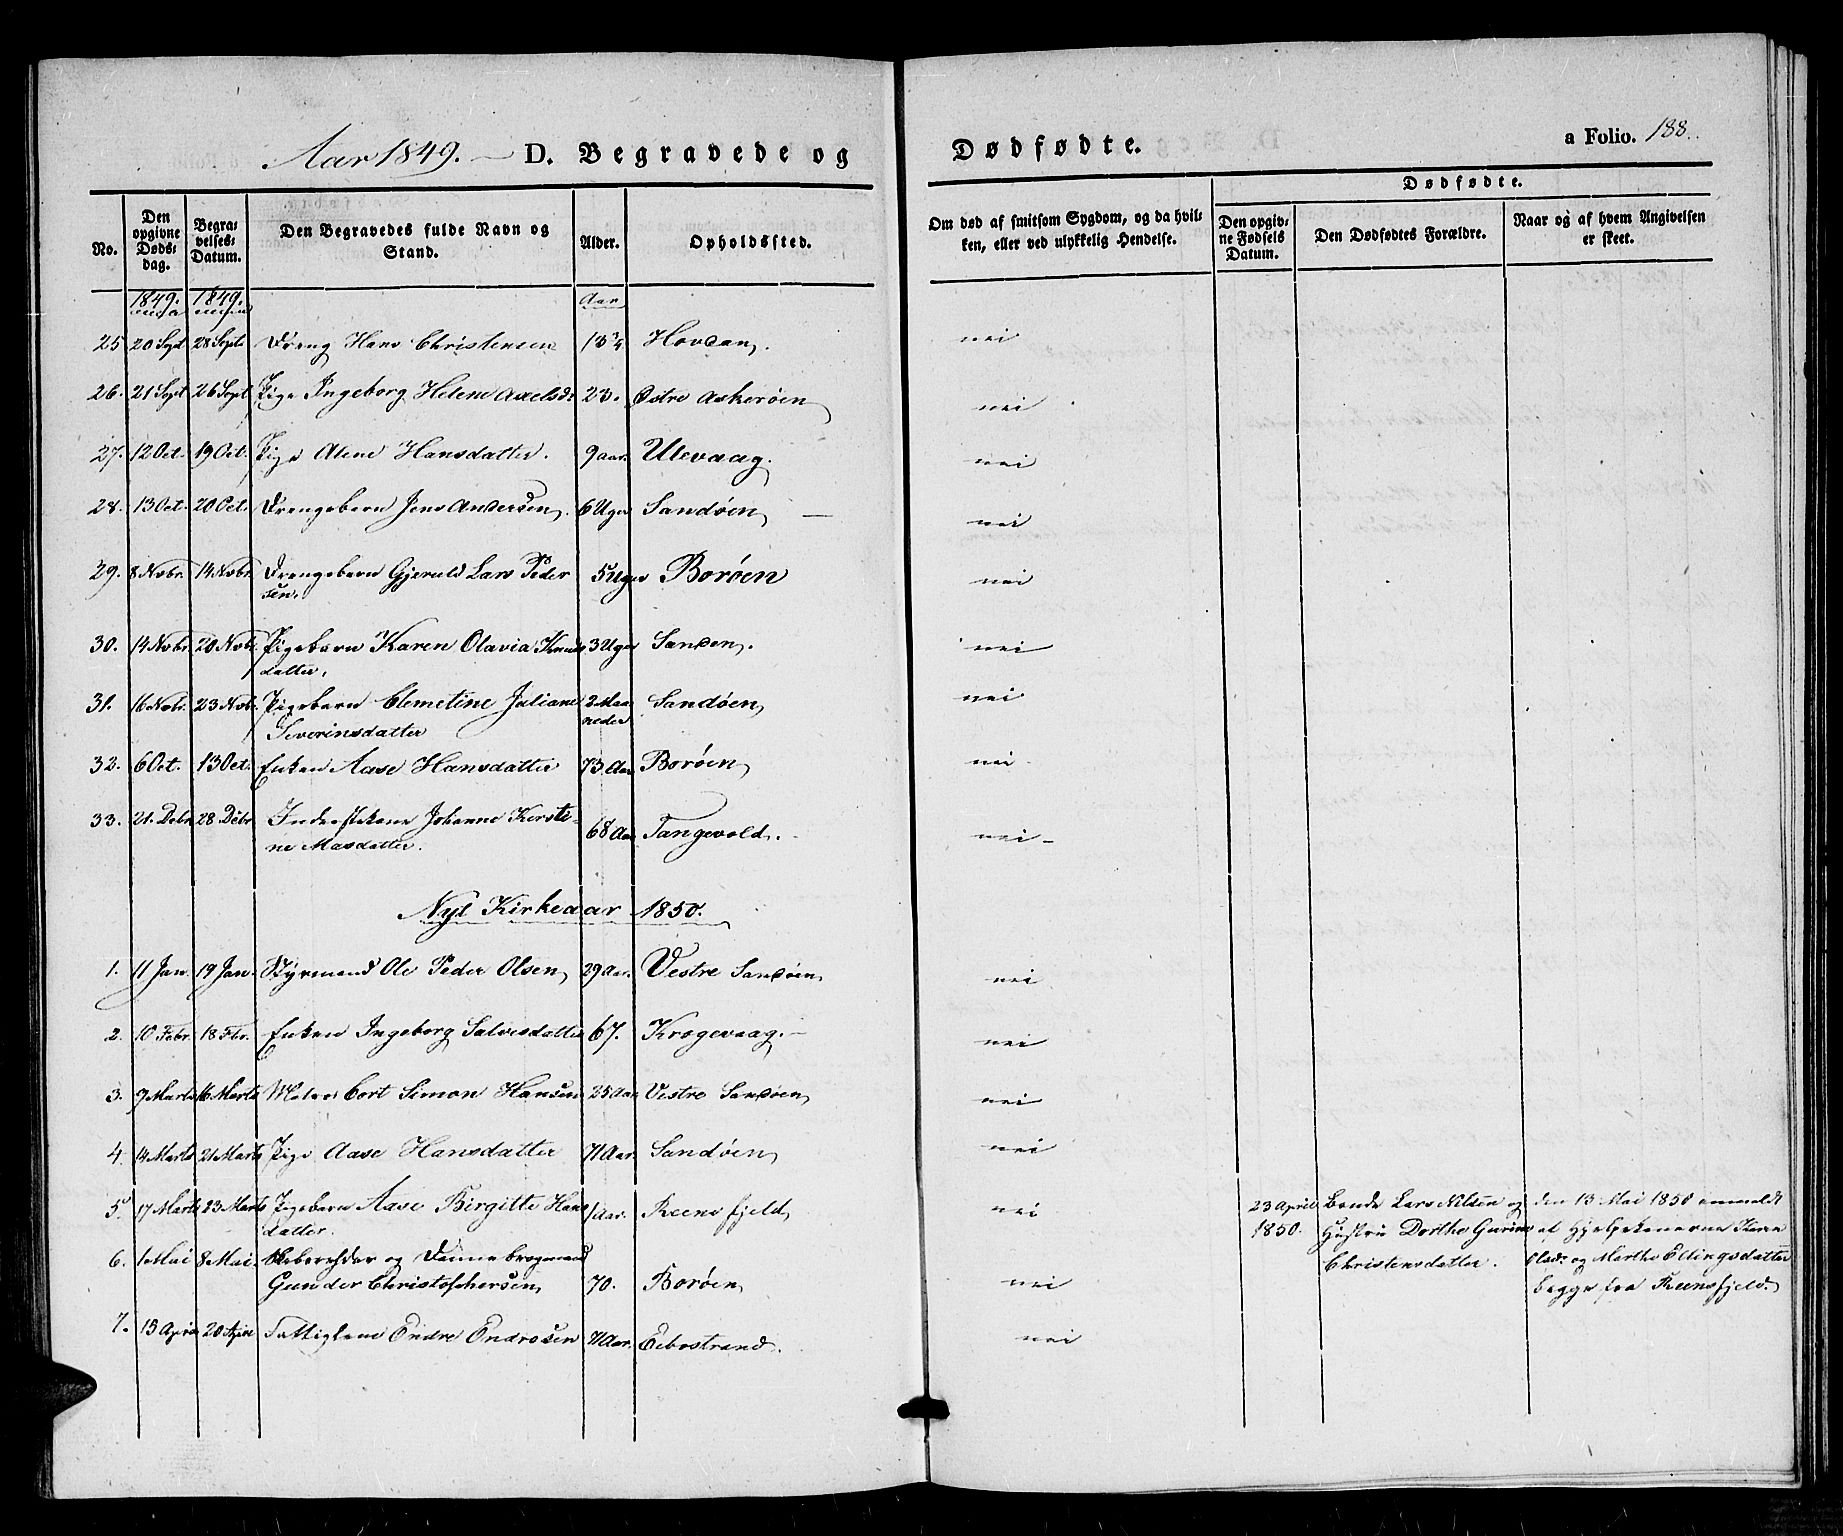 Aar 1849. — D. Begravede og Dødfødte. a Folio. 188.
No. Den opgivne Dødsdag. Begravelses-Datum. Den Begravedes fulde Navn og Stand. Alder. Opholdssted. Om død af smitsom Sygdom, og da hvilken, eller ved ulykkelig Hendelse. Dødfødte. Den opgivne Fødsels Datum. Den Dødfødtes Forældre. Naar og af hvem Angivelsen er skeet.
1849. 1849. Aar
25 20 Sept 28 Sept Dreng Hans Christensen 13¾ Hovdan. nei
26. 21 Sept 26 Sept Pige Ingeborg Helene Axelsd: 23. Østre Askerøen nei
27. 12 Oct. 19 Oct. Pige Alene Hansdatter. 9 aar. Ulevaag. nei
28. 13 Oct. 20 Oct. Drengebarn Jens Andersen. 6 Uger Sandøen — nei
29. 8 Novbr. 14 Novbr. Drengebarn Gjeruld Lars Peder 5 Uger Borøen nei
sen.
30. 14 Novbr. 20 Novbr. Pigebarn Karen Olavia Knuds 3 Uger Sanden. nei
datter.
31. 16 Novbr. 23 Novbr. Pigebarn Clemetine Juliane 2 Maa Sandøen nei
Severinsdatter neder
32. 6 Oct. 13 Oct. Enken Aase Hansdatter 73 Aar Borøen nei
33. 21. Debr 28 Debr Inderstekone Johanne Kersti-
ne Masdatter. 68 Aar Tangevold. nei
Nyt Kirkeaar 1850.
1. 11 Jan. 19 Jan. Styrmand Ole Peder Olsen 29 Aar. Vestre Sandøen nei
2. 10 Febr. 18 Fbr. Enken Ingeborg Salvesdatter 67. Krogevaag. nei
3. 9 Marts 16 Marts Matros Cort Simon Hansen 25 Aar Vestre Sandøen nei
4. 14 Marts 21 Marts Pige Aase Hansdatter 71 Aar. Sandøen nei
5. 17 Marts 23 Marts Pigebarn Aase Birgitte Hans 1 Aar. Reensfjeld nei 23 April Bonde Lars Nilsen og den 13 Mai 1850 anmeldt
datter. 1850. Hustru Dorthe Gurine af Hjelpekonerne
6. 1 Mai 8 Mai. Skibsrheder og Dannebrogsmand Christensdatter. Olsd: og Marthe Ellingsdatter
Gunder Christophersen 70. Borøen nei begge fra Reensfjeld.
7. 13 April 20 April Fattiglem Endre Endresen 71 Aar. Eebostrand. nei